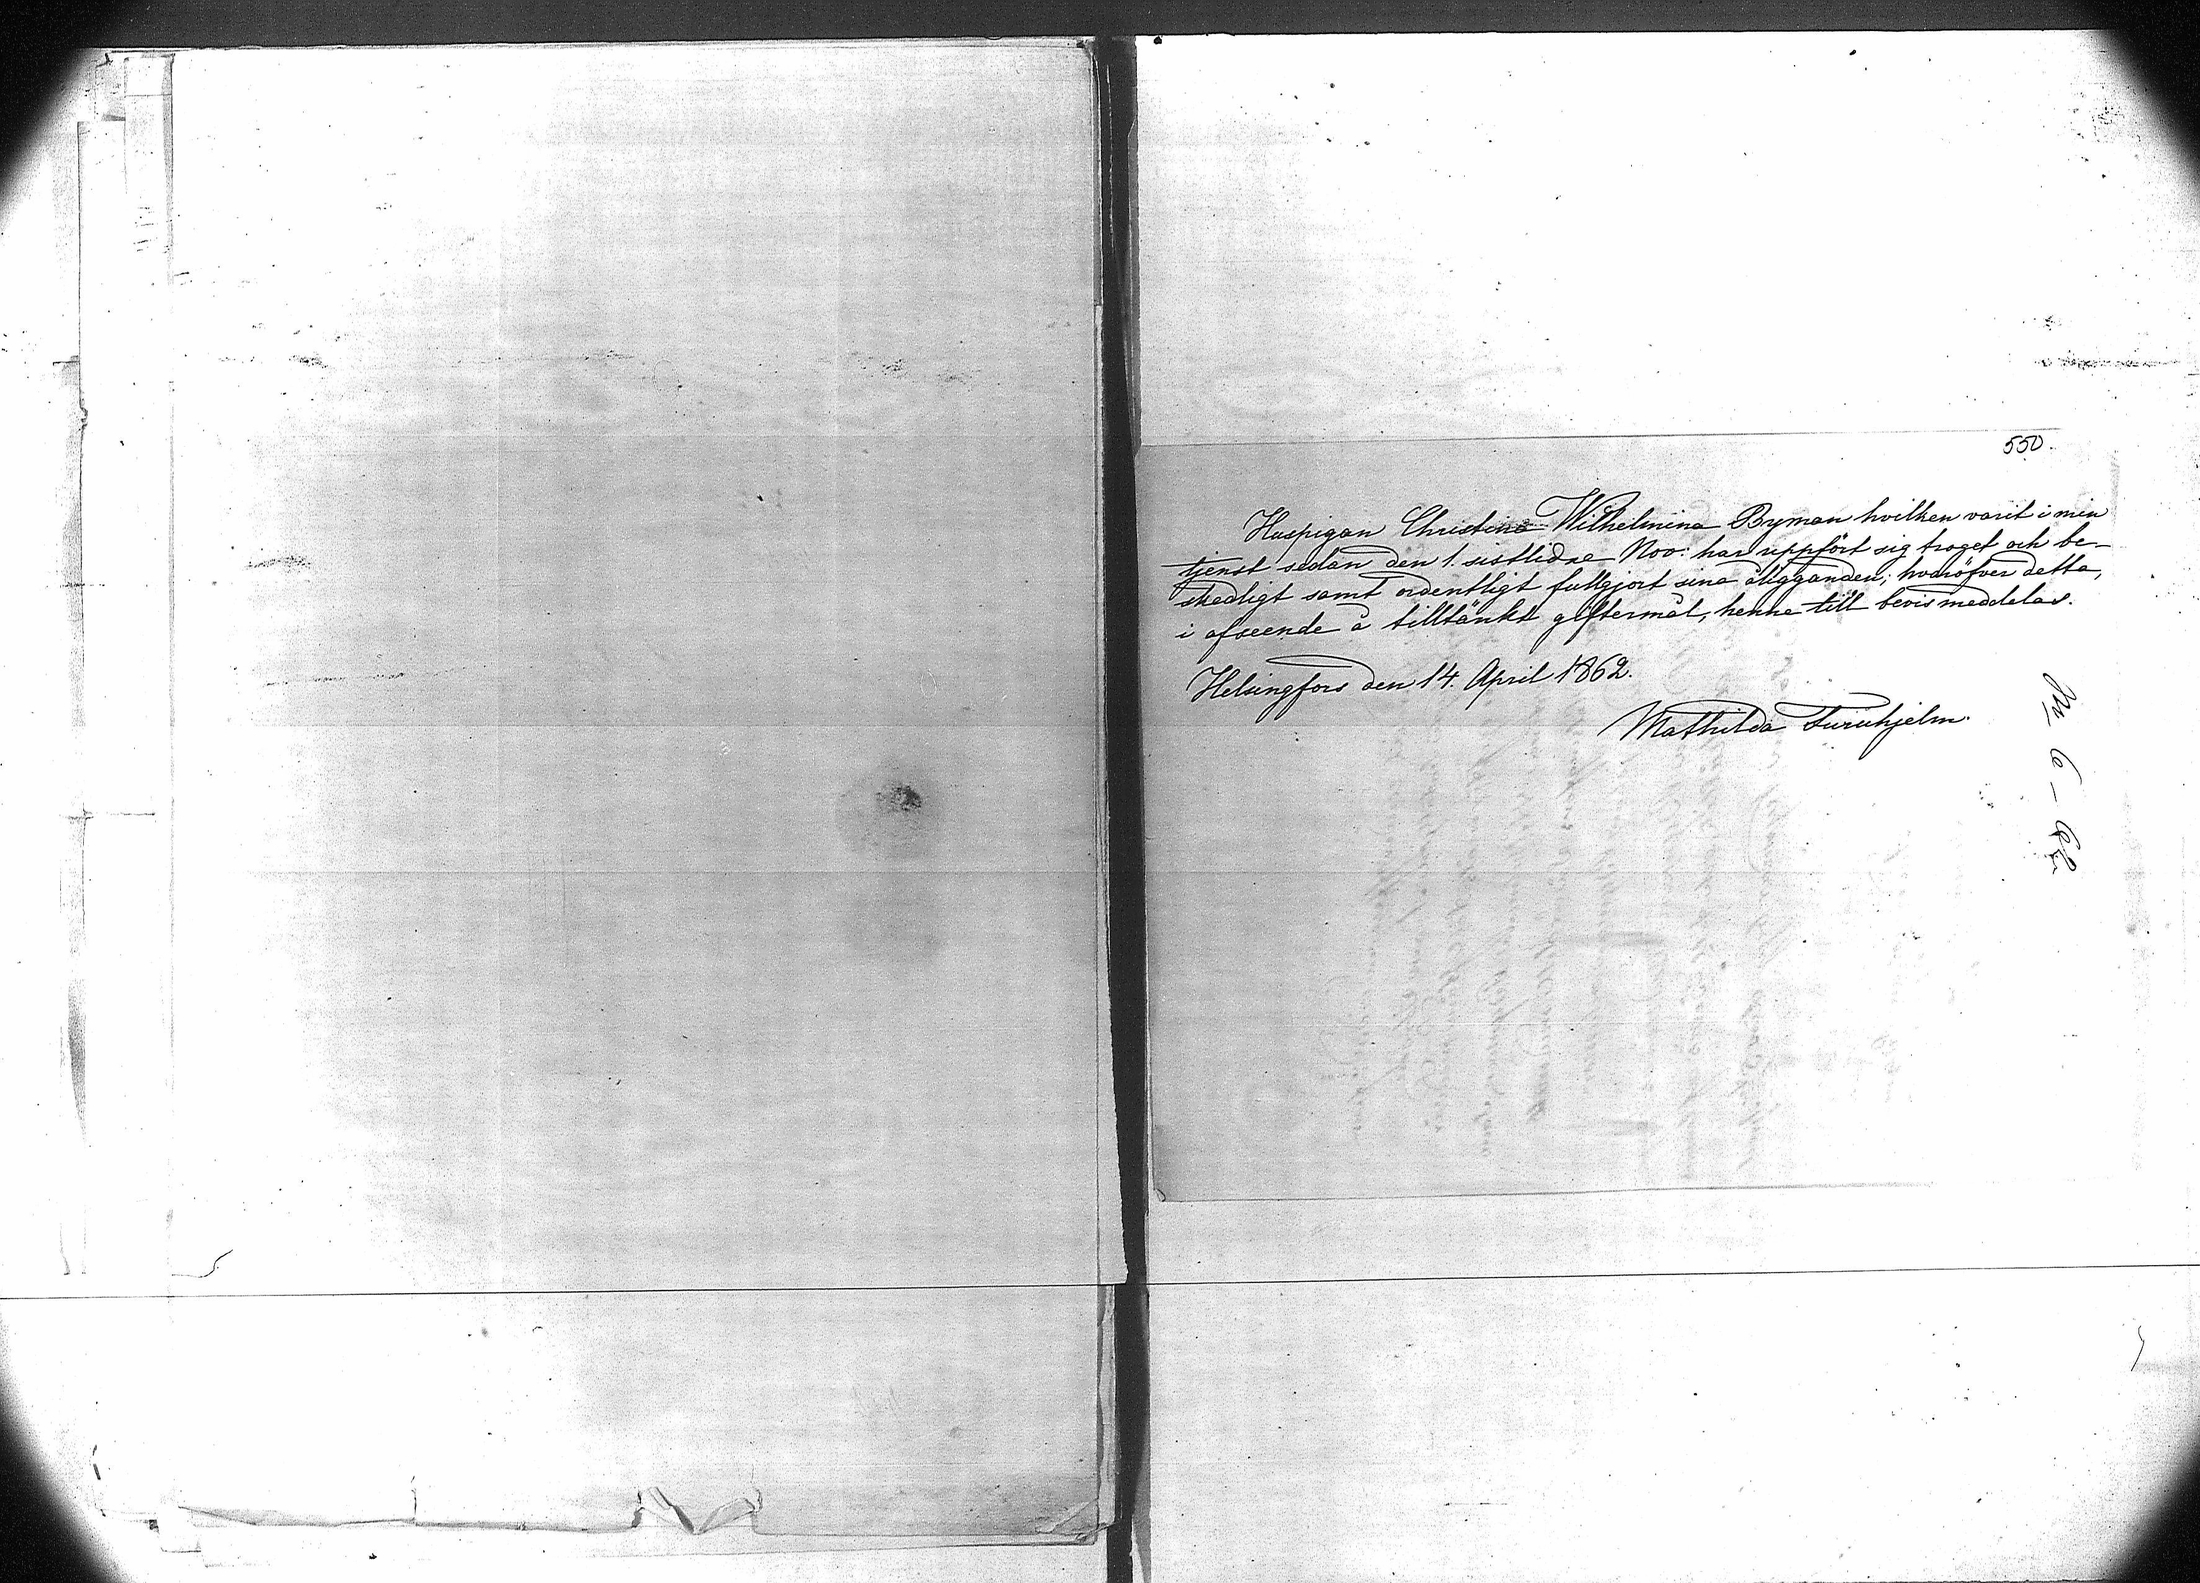 550.
Huspigan Christina Wilhelmina Byman hvilken varit i min
tjenst sedan den 1. sistlidne Nov: har uppfört sig troget och be-
skedligt samt ordentligt fullgjort sina åligganden; hvaröfver detta,
i afseende å tilltänkt giftermål, henne till bevis meddelas.
Helsingfors den 14. April 1862.
Mathilda Furuhjelm.
6 - 62.